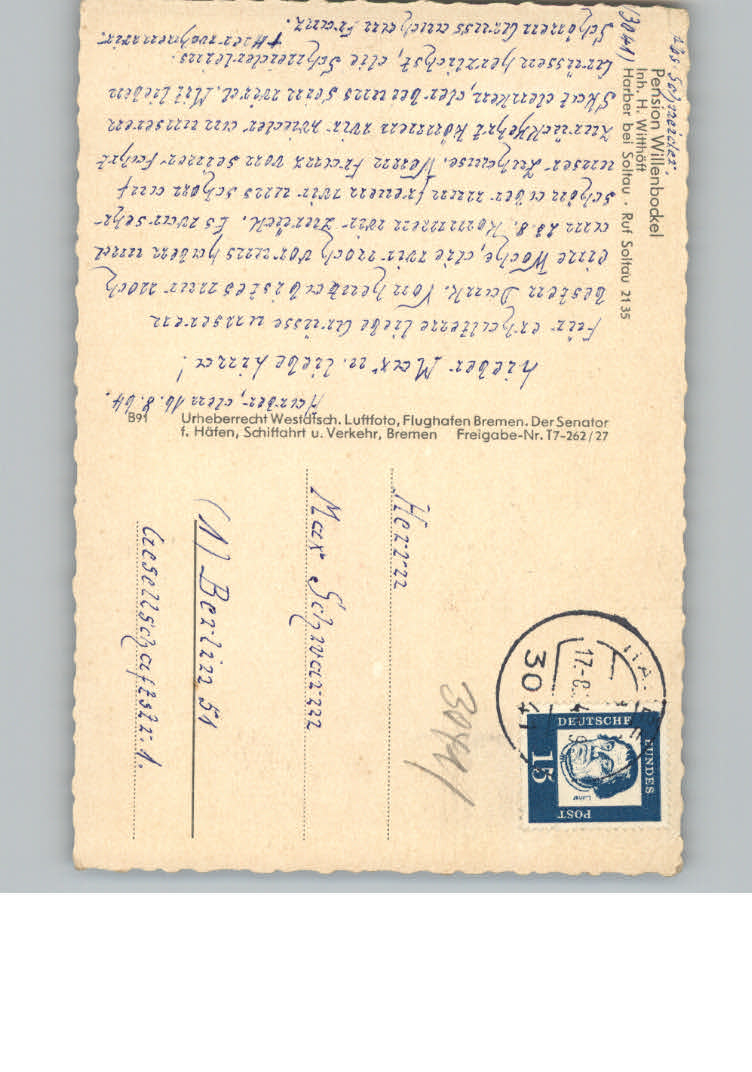 Abs. Schneider.
Pension Willenbockel
Inh. H. Witthöft
(3041) Harber bei Soltau · Ruf Soltau 2135
Harber, den 16. 8. 64.
Lieber Max u. liebe Lina!
Für erhaltene liebe Grüsse unseren
besten Dank. Von heut ab ist es nur noch
eine Woche, die wir noch vor uns haben und
am 23.8. kommen wir zurück. Es war sehr
schön aber nun freuen wir uns schon auf
unser Zuhause. Wenn Franz von seiner Fahrt
zurückkehrt können wir wieder an unseren
Skat denken, der bei uns sein wird. Mit lieben
Grüssen herzlichst, die Schneiderleins.
Schönen Gruss auch an Franz.
B91 Urheberrecht Westdtsch. Luftfoto, Flughafen Bremen. Der Senator
f. Häfen, Schiffahrt u. Verkehr, Bremen Freigabe-Nr. T7-262/27
Herrn
Max Schwarm
(1) Berlin 51
Gesellschaftstr. 1.
3041
17.-8.
304
DEUTSCHE
BUNDES
POST
15
Luther